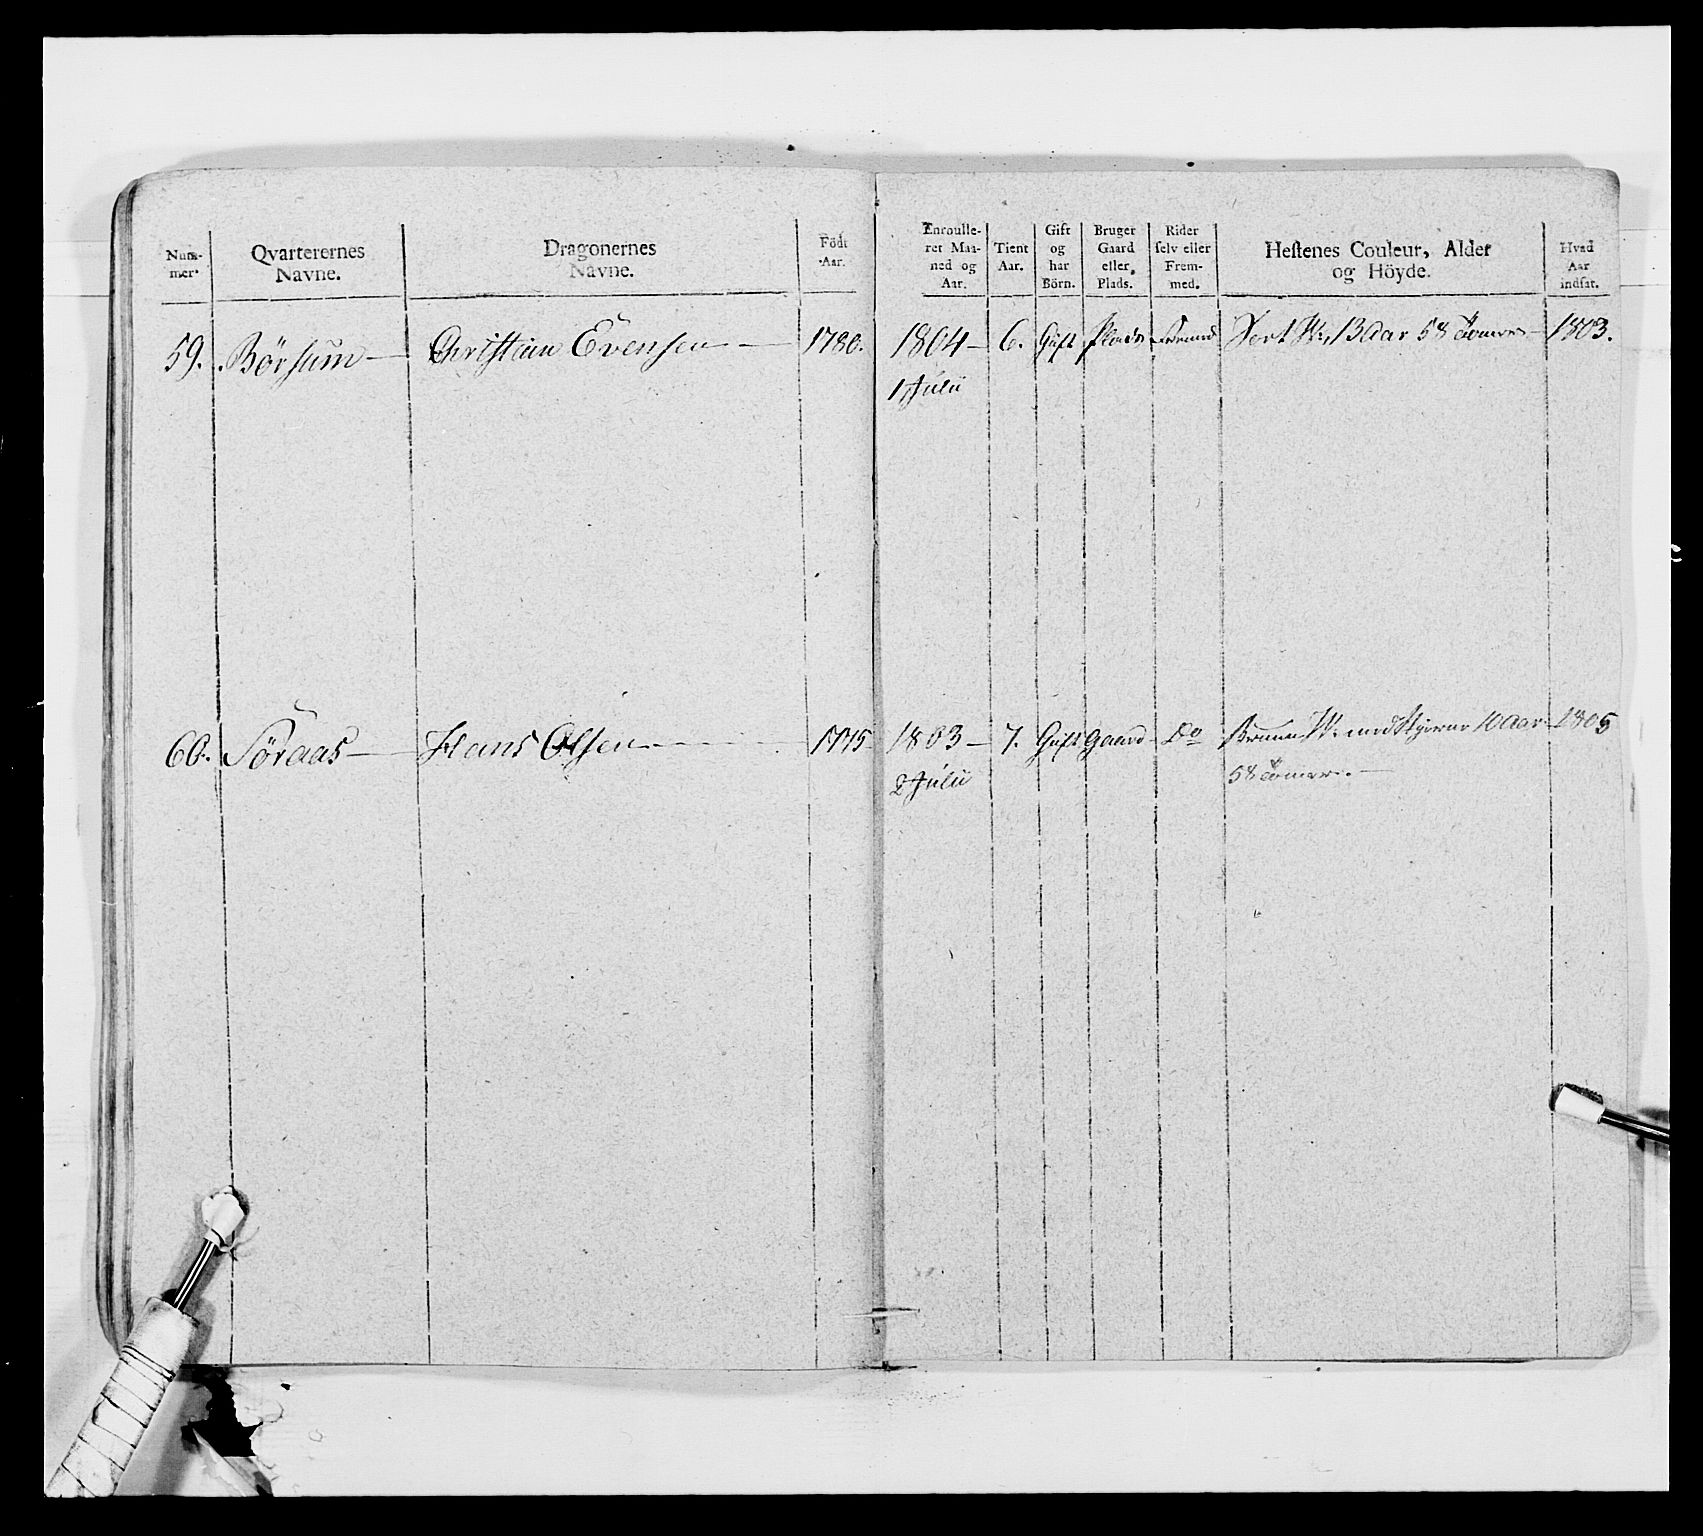 Num-
mer.
Qvarterernes
Navne.
Dragonernes
Navne.
Födt
Aar.
Enroulle-
ret Maa-
ned og
Aar.
Tient
Aar.
Gift
og
har
Börn.
Bruger
Gaard
eller
Plads.
Rider
selv eller
Frem-
med.
Hestenes Couleur, Alder
og Höyde.
Hvad
Aar
indsat.
59. Börsum — Christian Evensen — 1780. 1804 — 6. Gift Plads Fremd Sort W: 13 aar 58 Tomer — 1803.
1 Julii
60. Söraas — Hans Olsen — 1775 1803 — 7. Gift Gaard Do Bruun W: med Stjerne 10 Aar 1805
2 Julii 58 Tomer. —